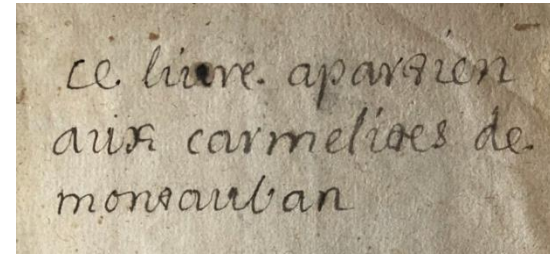 ce livre. apartien
aux carmelites de.
montauban